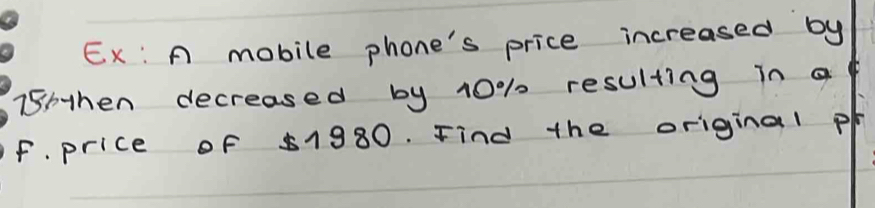 Ex: A mobile phone's price increased by
then decreased by 10% resulting in a
f. price of $1980. Find the original pr